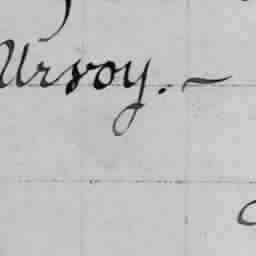 Ursoy. ~